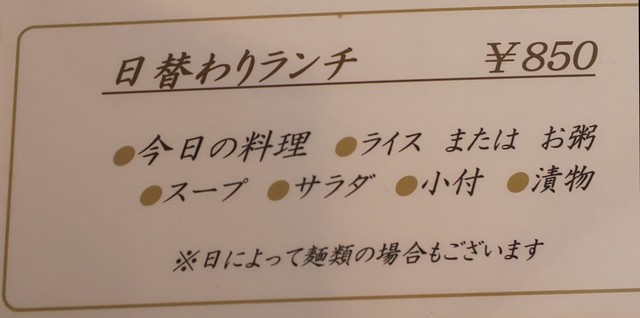 日替わりランチ ￥850
●今日の料理 ●ライス または お粥
●スープ ●サラダ ●小付 ●漬物
※日によって麺類の場合もございます